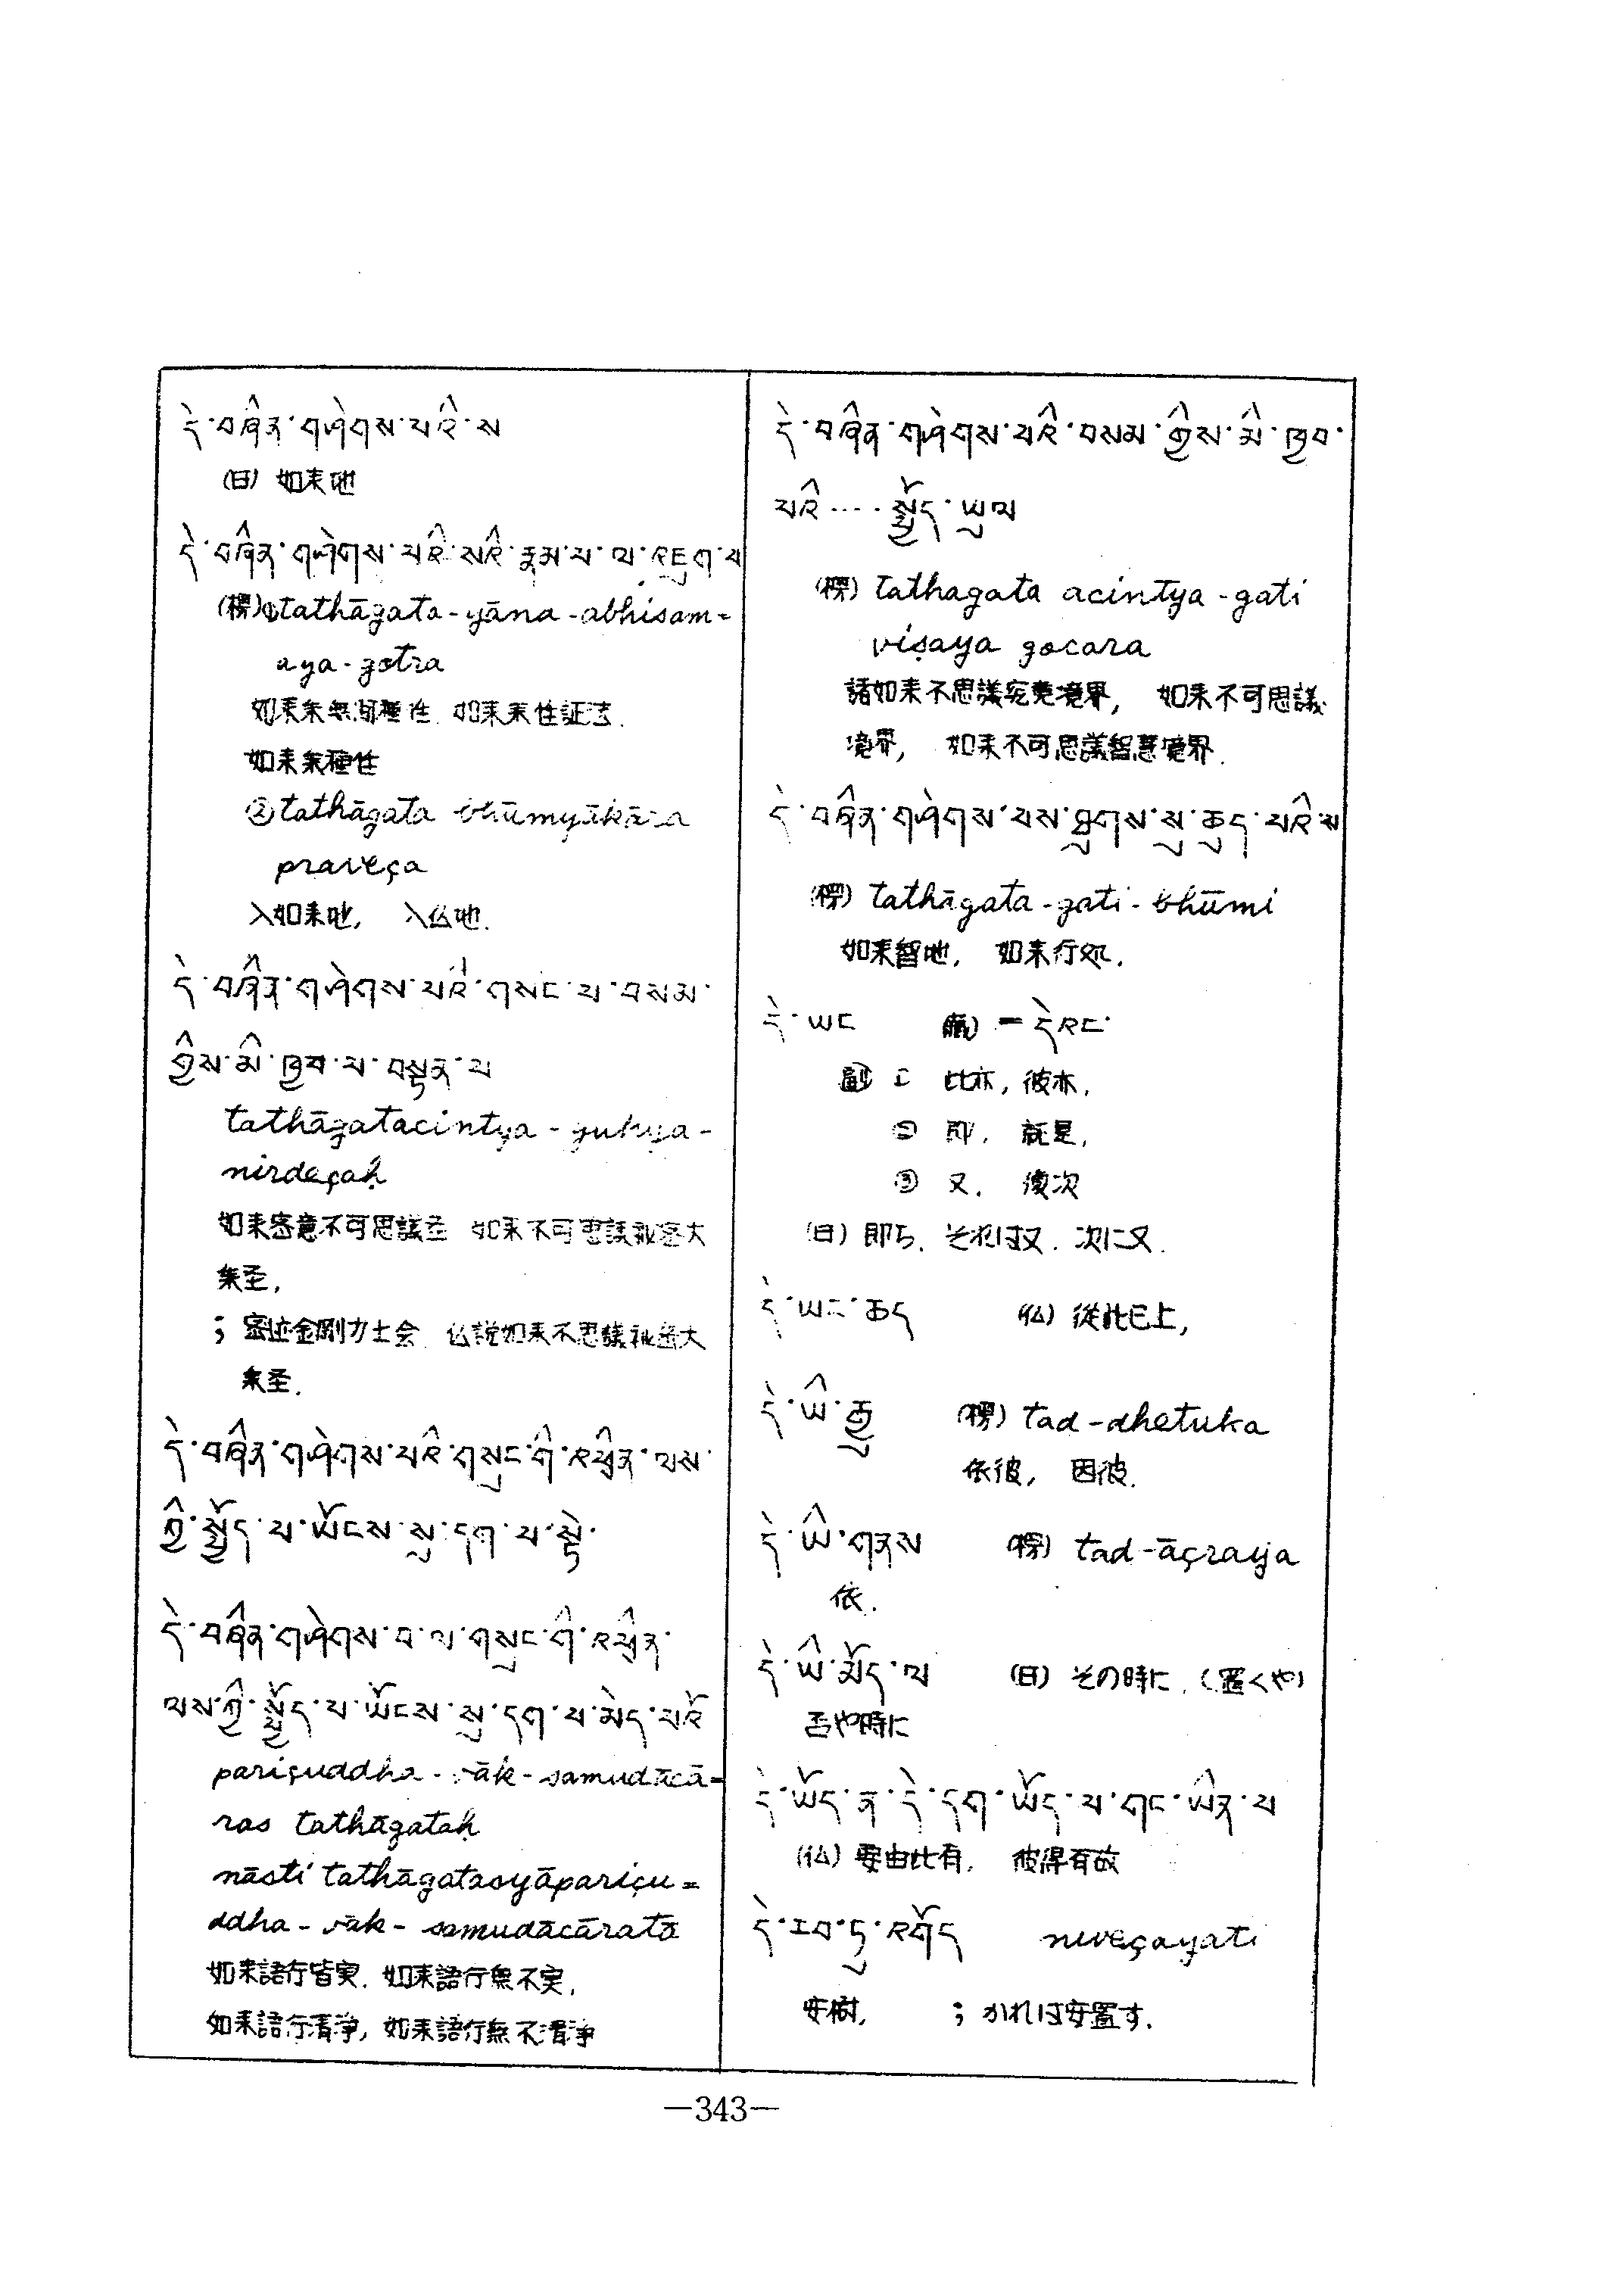 དེ་བཞིན་གཤེགས་པའི་ས
(日) 如来地
དེ་བཞིན་གཤེགས་པའི་སའི་རྣམ་པ་ལ་འཇུག་པ
(梵)①tathāgata-yāna-abhisam=
aya-gotra
如来乗無漸種性 如来乗性証法.
如来乗種性
②tathāgata bhūmyākāra
praveça
入如来地, 入仏地.
དེ་བཞིན་གཤེགས་པའི་གསང་བ་བསམ་
གྱིས་མི་ཁྱབ་པ་བསྟན་པ
tathāgatacintya-guhya-
nirdeçaḥ
如来密意不可思議圣 如来不可思議秘密大
乗圣,
; 密迹金剛力士会. 仏説如来不思議秘密大
乗圣.
དེ་བཞིན་གཤེགས་པའི་གསུང་གི་འཕྲིན་ལས་
ཀྱི་སྤྱོད་པ་ཡོངས་སུ་དག་པ་སྟེ་
དེ་བཞིན་གཤེགས་པ་ལ་གསུང་གི་འཕྲིན་
ལས་ཀྱི་སྤྱོད་པ་ཡོངས་སུ་དག་པ་མེད་པའོ
pariçuddha-vāk-samudācā=
ras tathāgataḥ
nāsti tathāgatasyāpariçu=
ddha-vāk-samudācāratā
如来語行皆実. 如来語行無不実,
如来語行清淨, 如来語行無不清淨
དེ་བཞིན་གཤེགས་པའི་བསམ་གྱིས་མི་ཁྱབ་
པའི....སྤྱོད་ཡུལ
(梵) tathagata acintya-gati
viṣaya gocara
諸如来不思議究竟境界, 如来不可思議
境界, 如来不可思議智慧境界.
དེ་བཞིན་གཤེགས་པས་ཐུགས་སུ་ཆུད་པའི་ས
(梵) tathāgata-gati-bhūmi
如来智地, 如来行処.
དེ་ཡང (蔵) = དེའང་
副 ① 此亦, 彼亦,
② 即, 就是,
③ 又, 復次
(日) 即ち, それは又. 次に又.
དེ་ཡང་ཆད (仏) 從此已上,
དེ་ཡི་རྒྱུ (梵) tad-dhetuka
依彼, 因彼.
དེ་ཡི་གནས (梵) tad-āçraya
依.
དེ་ཡི་མོད་ལ (日) その時に. (置くや)
否や時に
དེ་ཡོད་ན་དེ་དག་ཡོད་པ་གང་ཡིན་པ
(仏) 要由此有, 彼得有故
དེ་རབ་ཏུ་འགོད niveçayati
安樹, ; かれは安置す.
—343—